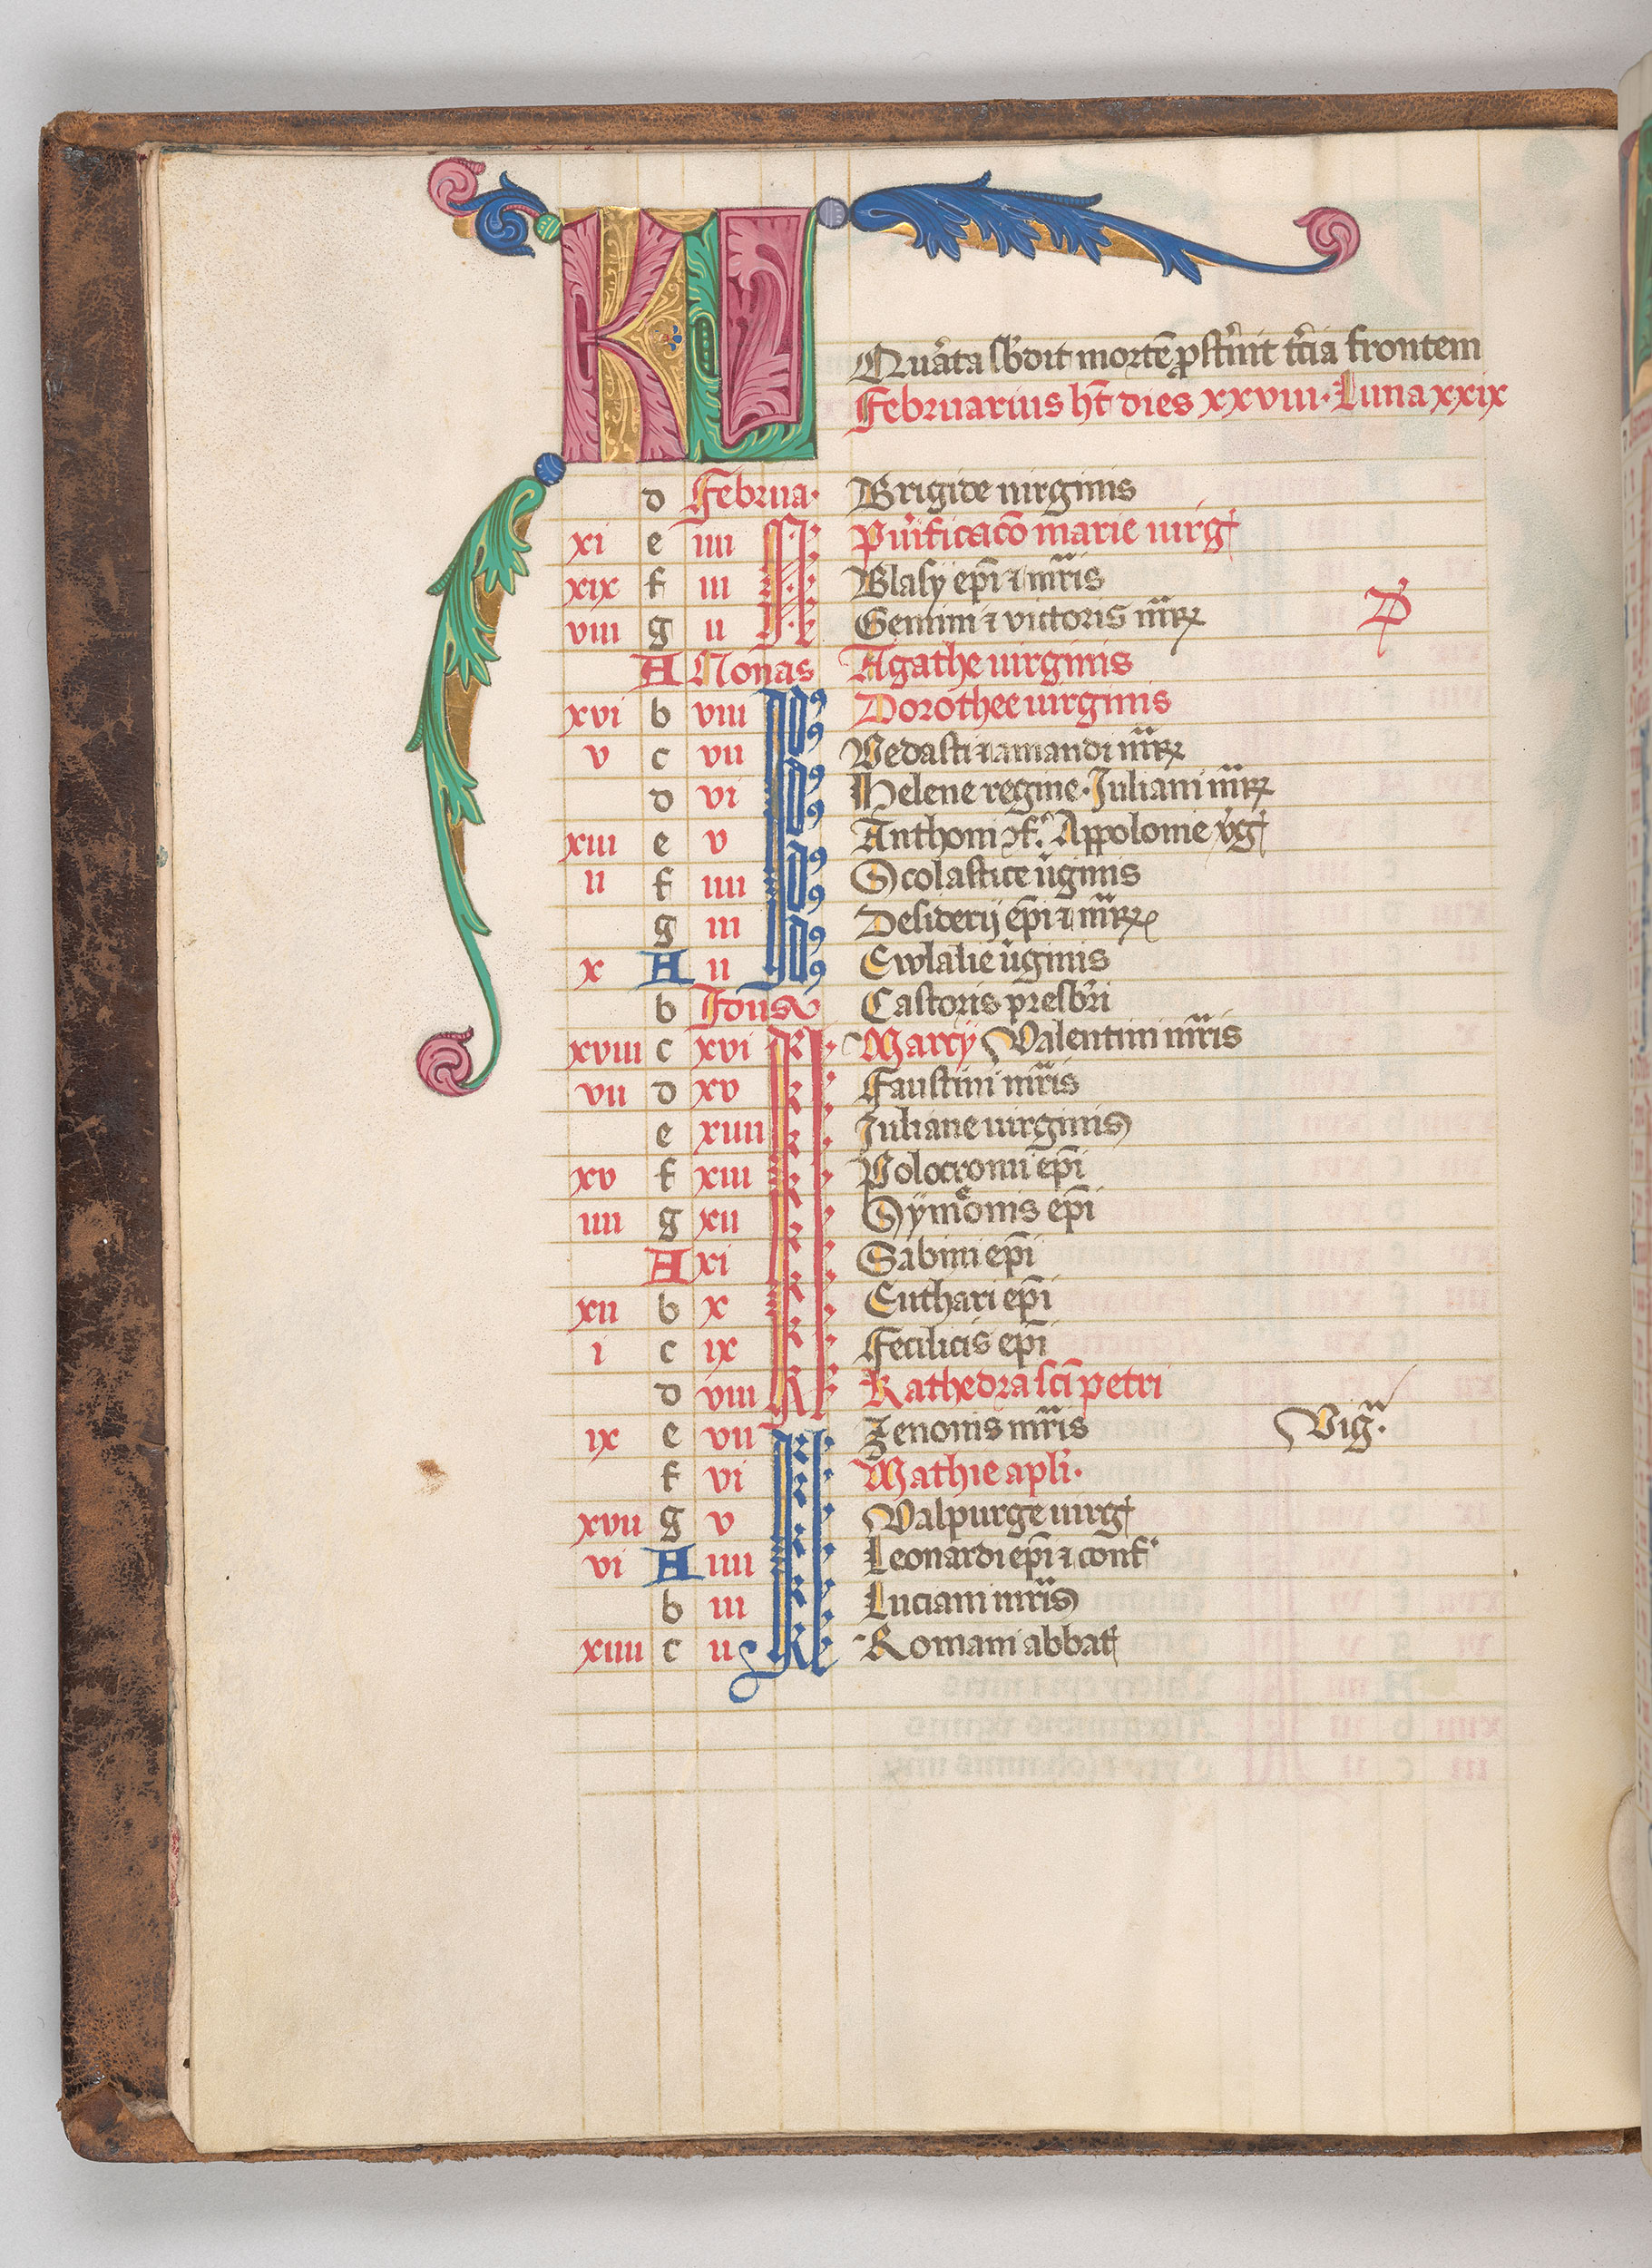 KL
Quarta sbdit mortē ꝓstnit tcia frontem
Februarius ht dies xxviii · Luna xxix
d Februa · Brigide uirginis
xi e iiii N Purificacō marie uirg
xix f iii N Blasy epī ⁊ mris
viii g ii N Gemini ⁊ victoris mrꝝ
A Nonas Agathe uirginis
xvi b viii Idꝰ Dorothee uirginis
v c vii Idꝰ Vedasti ⁊ amandi mrꝝ
d vi Idꝰ Helene regine · Juliani mrꝝ
xiii e v Idꝰ Anthoni Appolonie vg
ii f iiii Idꝰ Scolastice ugınis
g iii Idꝰ Desiderij epī ⁊ mrꝝ
x A ii Idꝰ Ewlalie uginis
b Idus Castoris presbri
xviii c xvi kl Marcij Valentini mris
vii d xv kl Faustini mris
e xiiii kl Juliane uirginis
xv f xiii kl Policronii epī
iiii g xii kl Symonis epī
A xi kl Sabini epī
xii b x kl Euthari epī
i c ix kl Fecilicis epī
d viii kl Kathedra scī petri
ix e vii kl Zenonis mris Vigᵃ.
f vi kl Mathie apli ·
xvii g v kl Walpurge uirg
vi A iiii kl Leonardi epī ⁊ conf
b iii kl Luciani mris
xiiii c ii kl Romani abbat